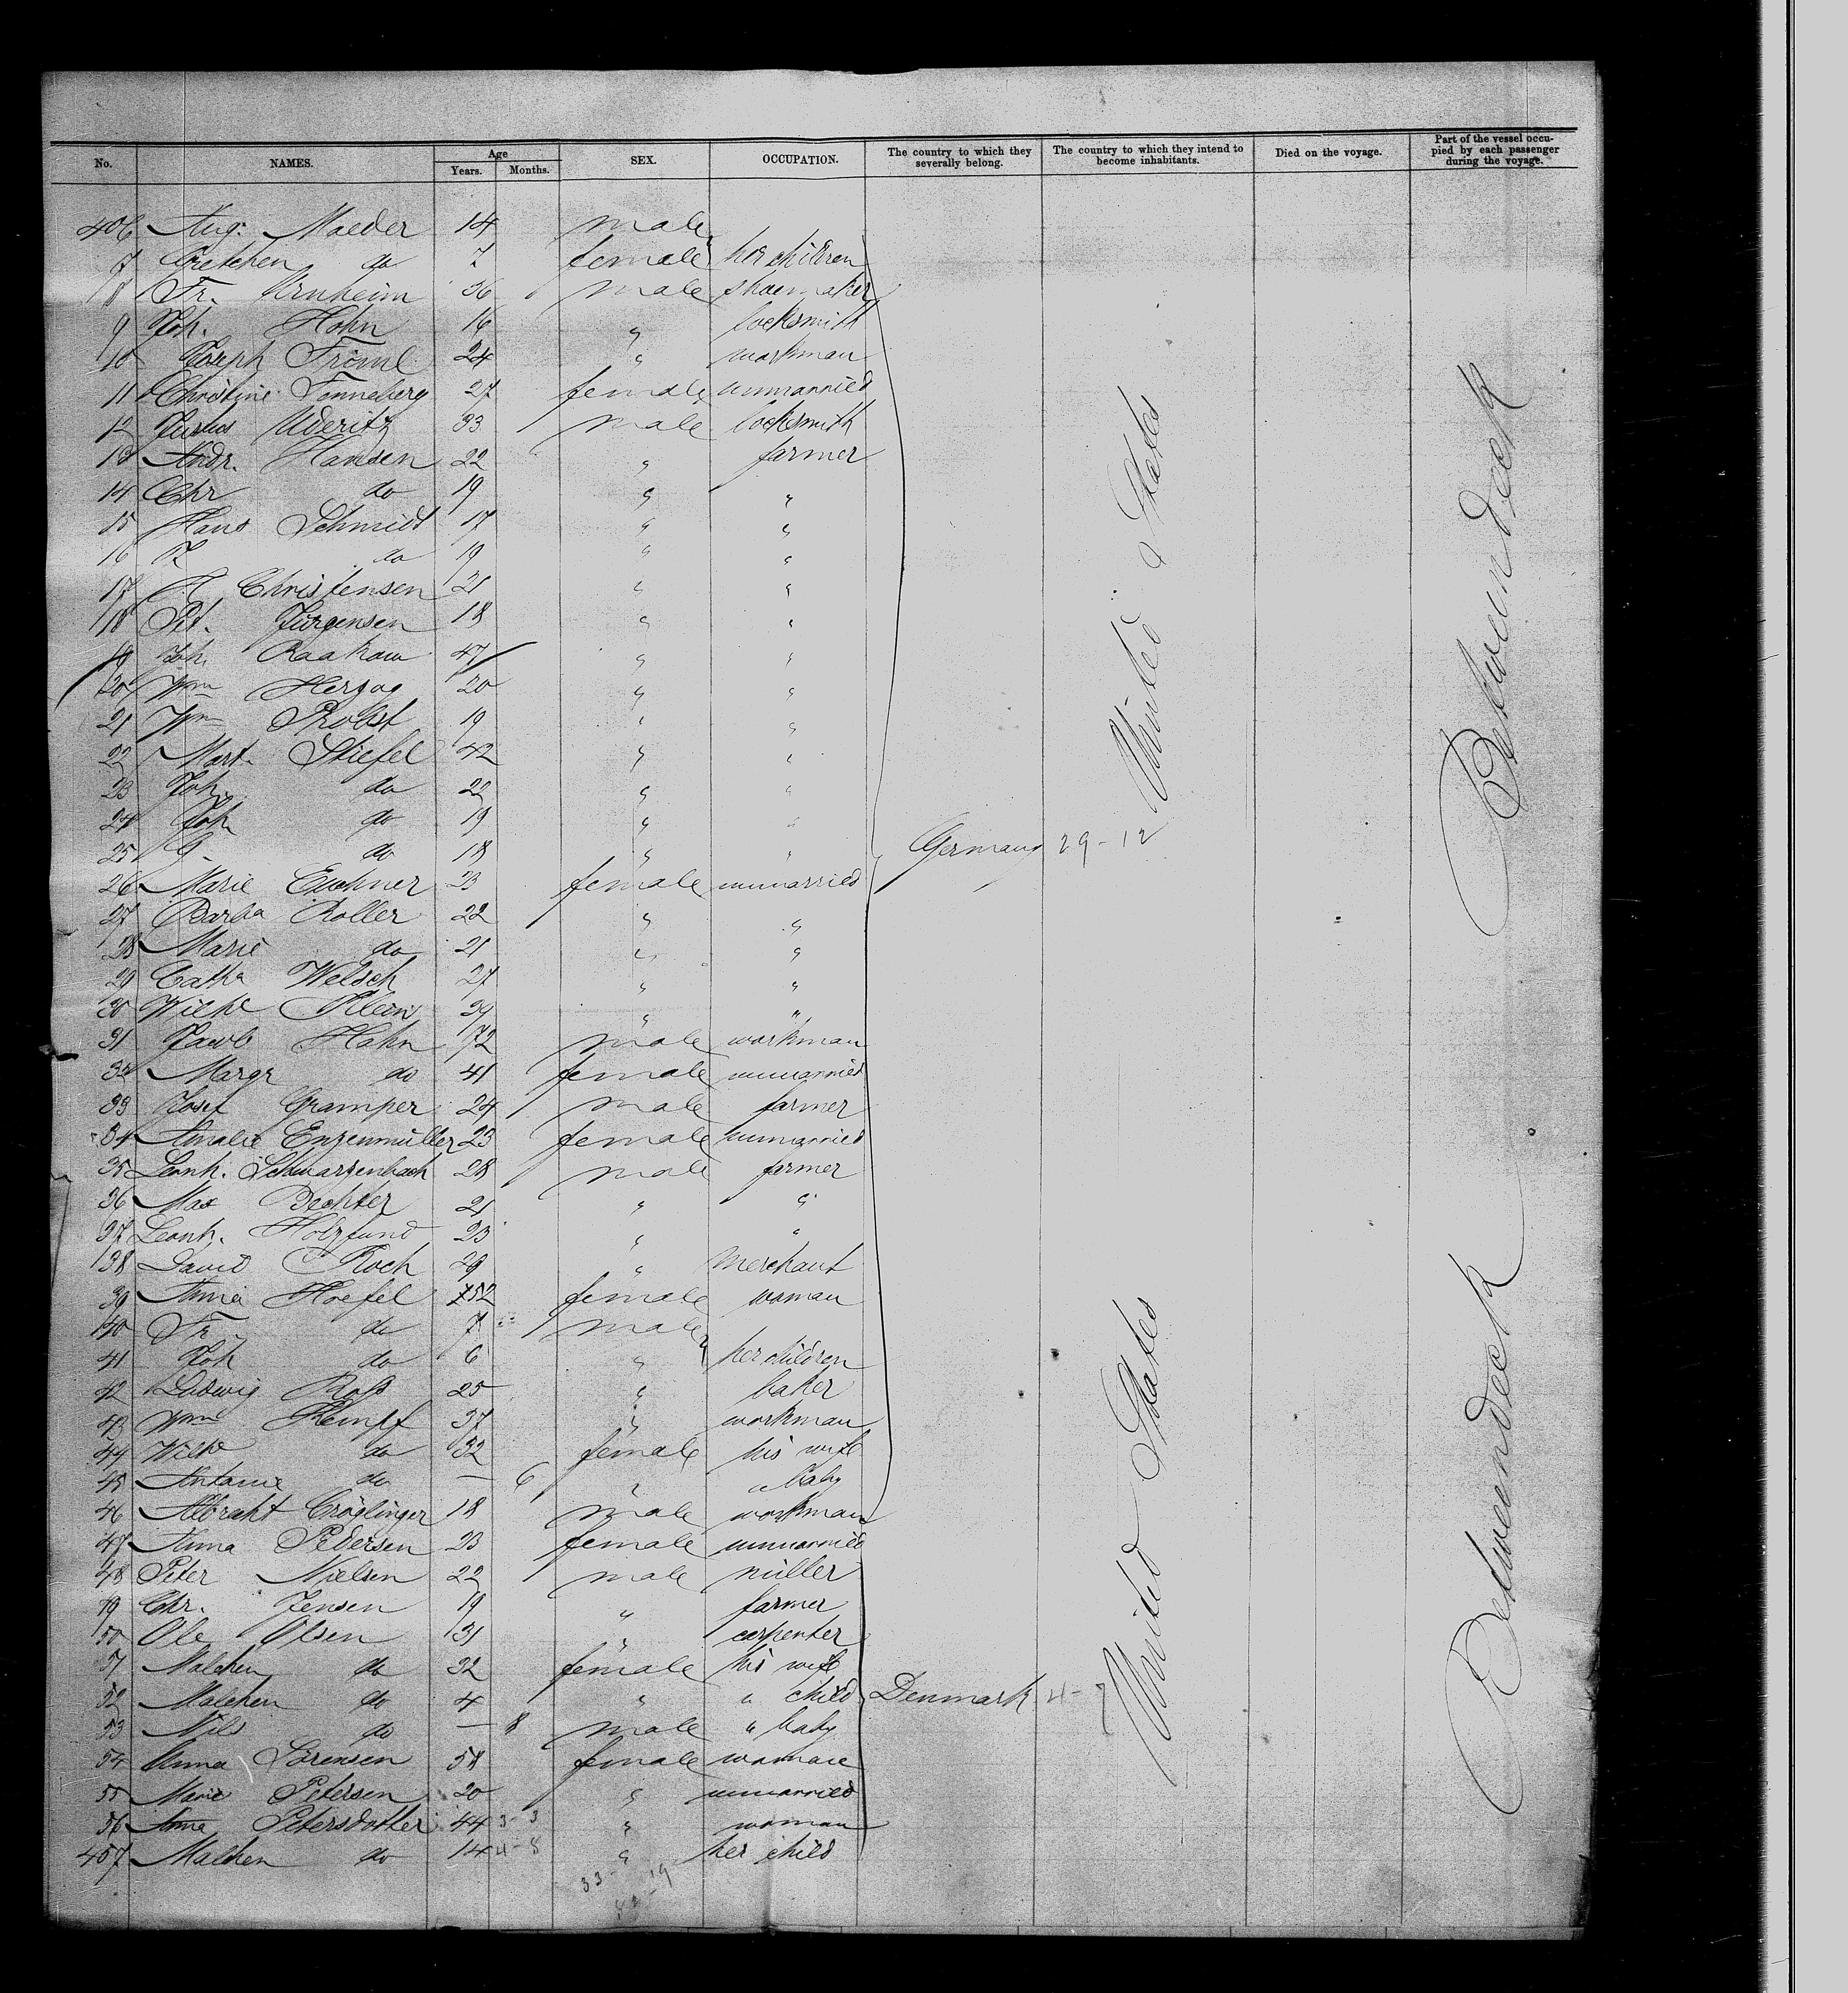 No. NAMES. Age Years. Months. SEX. OCCUPATION. The country to which they severally belong. The country to which they intend to become inhabitants. Died on the voyage. Part of the vessel occupied by each passenger during the voyage.
406 Aug. Maeder 14 male
7 Gretchen do 7 female her children
8 Fr. Arnheim 36 male shoemaker
9 Joh. Hohn 16 " locksmith
10 Joseph Froml 24 " workman
11 Christine Tenneberg 27 female unmarried
12 Justus Uderitz 33 male locksmith
13 Andr. Hansen 22 " farmer
14 Chr do 19 " "
15 Hans Schmidt 17 " "
16 do 19 " "
17 Christensen 21 " "
18 Pet. Jürgensen 18 " "
19 Joh. Raakow 47 " "
20 Wm Herzog 20 " "
21 Wm Probst 19 " "
22 Mart. Stiefel 42 " "
23 Joh. do 22 " "
24 Joh do 19 " "
25 G. do 18 " " Germany 29-12 United States Between deck
26 Marie Euchner 23 female unmarried
27 Barba Roller 22 " "
28 Marie do 21 " "
29 Catha Welsch 27 " "
30 Wilhe Klein 39 " "
31 Jacob Hahn 72 male workman
32 Margr do 41 female unmarried
33 Josef Gramper 24 male farmer
34 Amalie Enzenmüller 23 female unmarried
35 Leonh. Schwarzenbach 28 male farmer
36 Max Bechter 21 " "
37 Leonh. Holzfund 23 " "
38 David Koch 29 " merchant
39 Anna Hoefel 52 female woman
40 Fr. do 7 male
41 Joh do 6 " her children
42 Ludwig Roß 25 " baker
43 Wm Kempf 37 " workman
44 Wilhe do 32 female his wife
45 Antonie do — 6 " " baby
46 Albraht Cröglinger 18 male workman
47 Anna Pedersen 23 female unmarried
48 Peter Nielsen 22 male miller
49 Chr. Jensen 19 " farmer
50 Ole Olsen 31 " carpenter
51 Malchen do 32 female his wife
52 Malchen do 4 " " child Denmark 4-7 United States Between deck
53 Nils do — 8 male " baby
54 Anna Sörensen 58 female woman
55 Marie Petersen 20 " unmarried
56 Anna Petersdotter 44 3-3 " woman
457 Malchen do 14 4-8 " her child
33-19